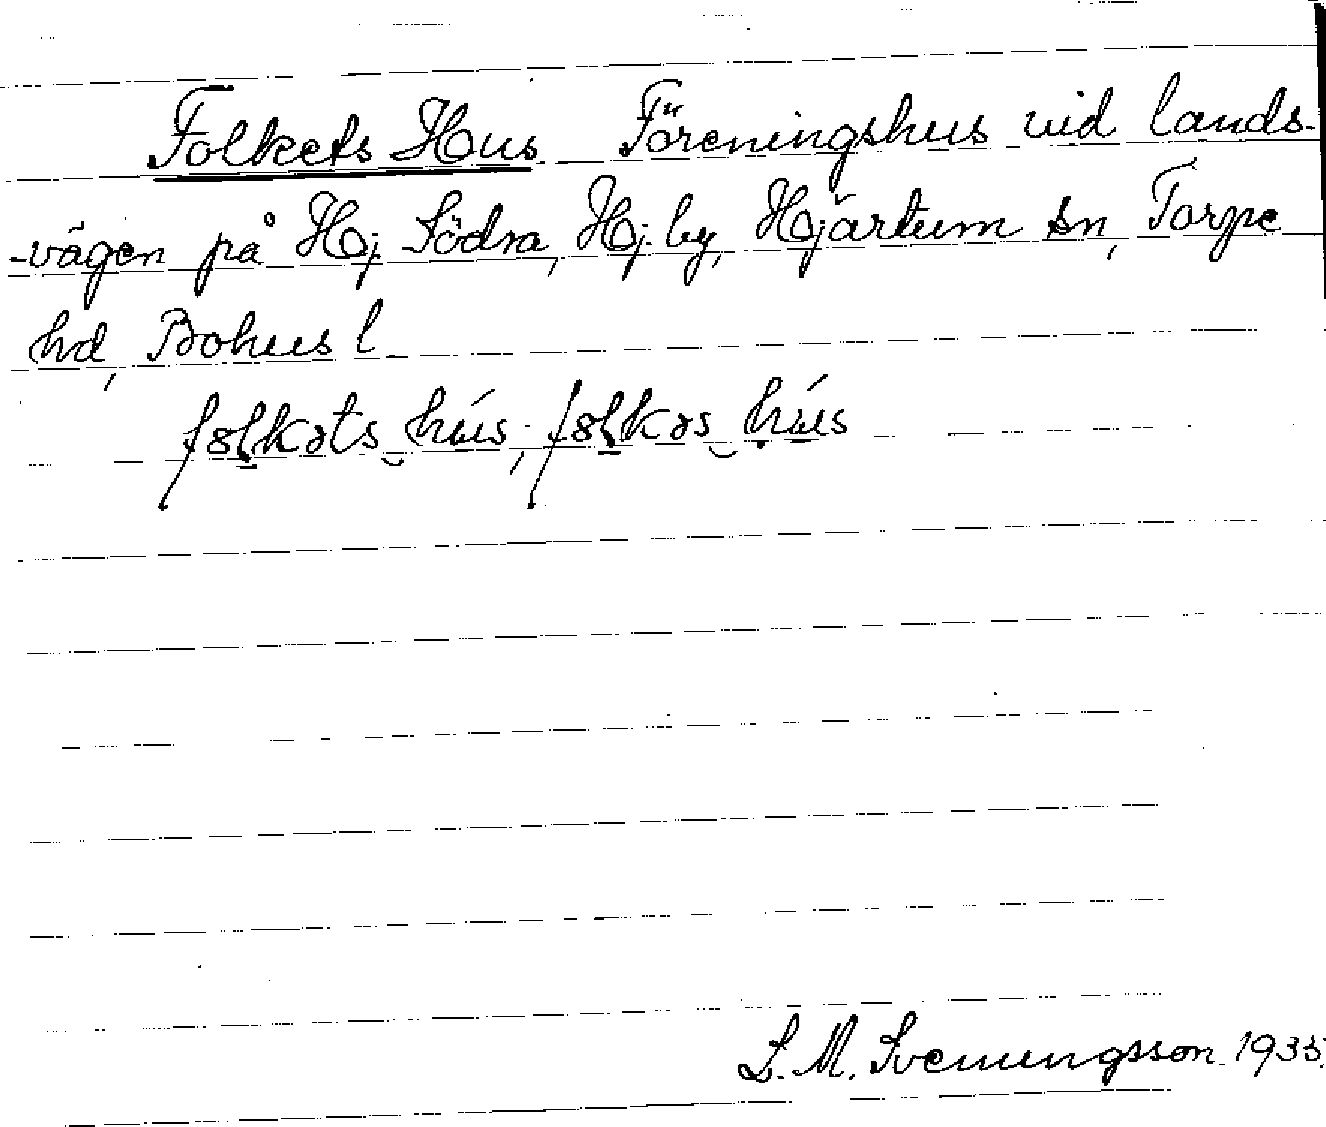 Folkets Hus Föreningshus vid lands-
vägen på Hj. Södra, Hj. by, Hjärtum sn, Torpe
hd, Bohus l
fɔlkəts hús, fɔlkəs hús
S. M. Svenungsson 1935.